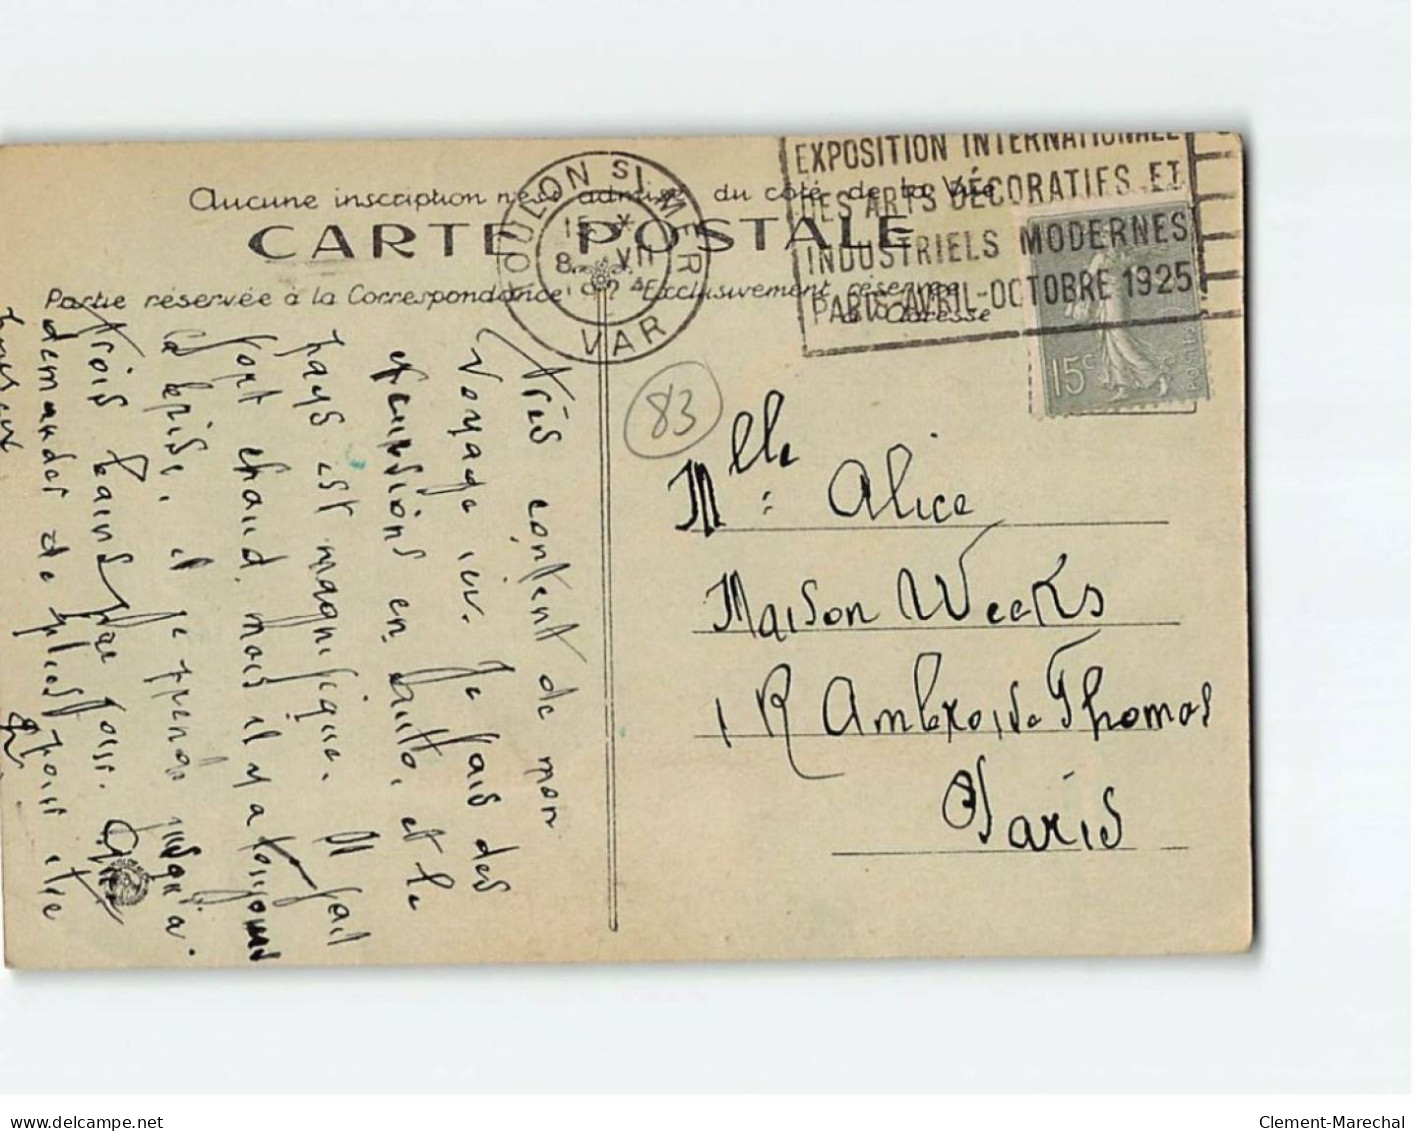 Aucune inscription n'est admise du côté de la Vue
CARTE POSTALE
Partie réservée à la Correspondance
Exclusivement réservée
à l'Adresse
TOULON S/ MER
15 *
8 VII
24
VAR
EXPOSITION INTERNATIONALE
DES ARTS DÉCORATIFS ET
INDUSTRIELS MODERNES
PARIS AVRIL-OCTOBRE 1925
15c
POSTES
83
Mlle Alice
Maison Weeks
1 R Ambroise Thomas
Paris
très content de mon
voyage ici. Je fais des
excursions en autto, et le
pays est magnifique. Il fait
fort chaud, mais il y a toujours
la brise, et je prends jusqu'à
trois bains par jour.
demander de plus pour être
delcampe.net
Clement-Marechal